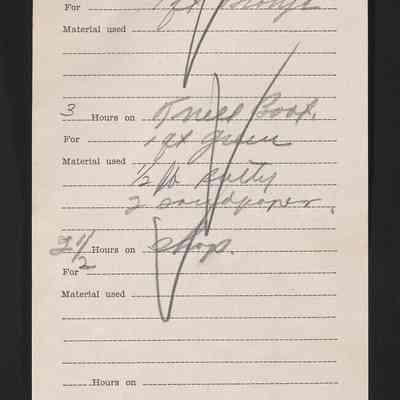 For 1 qt
Material used
3 Hours on Kness Boat,
For 1 qt green
Material used
1/2 lb putty
2 sandpaper,
2 1/2 Hours on shop.
For
Material used
Hours on